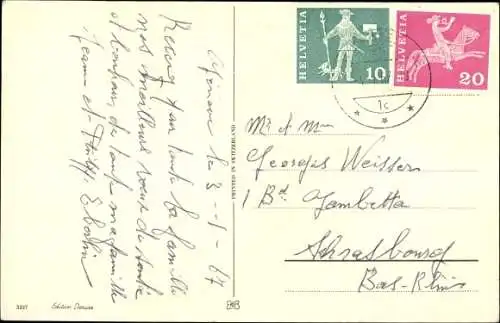 Genève le 3-1-67
Recevez pour toute la famille
nos meilleurs voeux de santé
et bonheur, de toute ma famille
Jeanne et
HELVETIA
10
HELVETIA
20
1c
Mr et Mme
Georges Weisser
1 Bd. Gambetta
Strasbourg
Bas-Rhin
3327
Edition
PRINTED IN SWITZERLAND